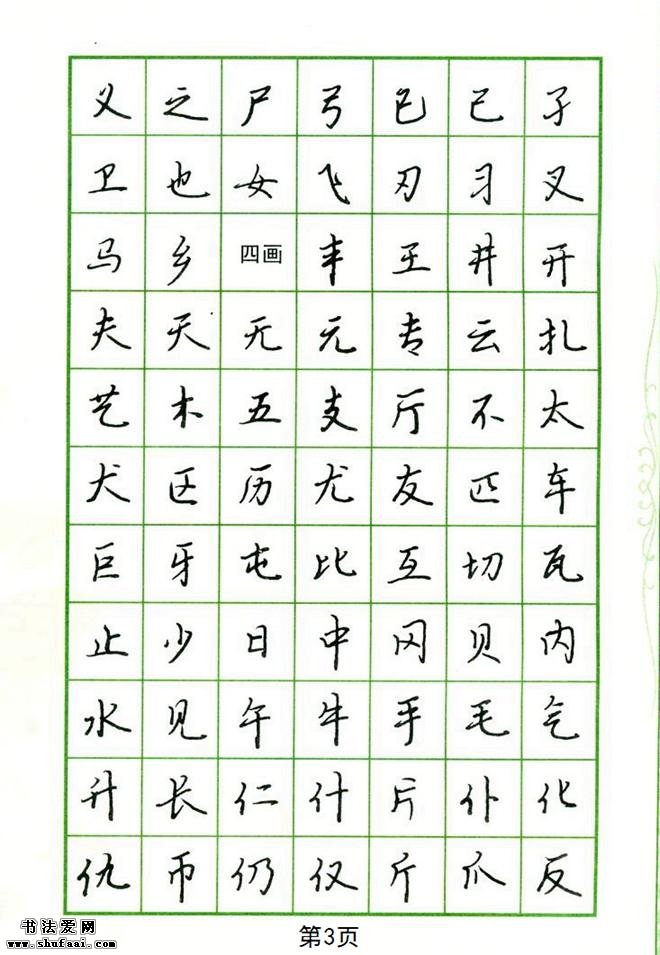 义 之 尸 弓 己 已 子
卫 也 女 飞 刃 习 叉
马 乡 四画 丰 王 井 开
夫 天 无 元 专 云 扎
艺 木 五 支 厅 不 太
犬 区 历 尤 友 匹 车
巨 牙 屯 比 互 切 瓦
止 少 日 中 冈 贝 内
水 见 午 牛 手 毛 气
升 长 仁 什 片 仆 化
仇 币 仍 仅 斤 爪 反
书法爱网
www.shufaai.com
第3页